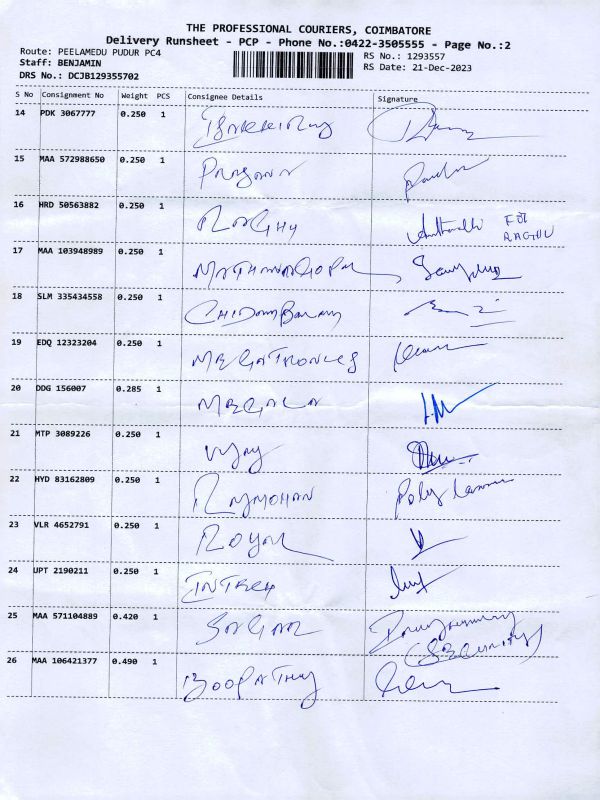 THE PROFESSIONAL COURIERS, COIMBATORE
Delivery Runsheet - PCP - Phone No.:0422-3505555 - Page No.:2
Route: PEELAMEDU PUDUR PC4 RS No.: 1293557
Staff: BENJAMIN RS Date: 21-Dec-2023
DRS No.: DCJB129355702
S No Consignment No Weight PCS Consignee Details Signature
14 PDK 3067777 0.250 1
15 MAA 572988650 0.250 1 PRASANA
16 HRD 50563882 0.250 1 RAGHU FOR
RAGHU
17 MAA 103948989 0.250 1
18 SLM 335434558 0.250 1 CHIDAMBARAM
19 EDQ 12323204 0.250 1 MEGATRONICS
20 DDG 156007 0.285 1 MEGALA
21 MTP 3089226 0.250 1 Vijay
22 HYD 83162809 0.250 1 RAJMOHAN
23 VLR 4652791 0.250 1 ROYAL
24 UPT 2190211 0.250 1 INTECH
25 MAA 571104889 0.420 1
(SECURITY)
26 MAA 106421377 0.490 1 BOOPATHY